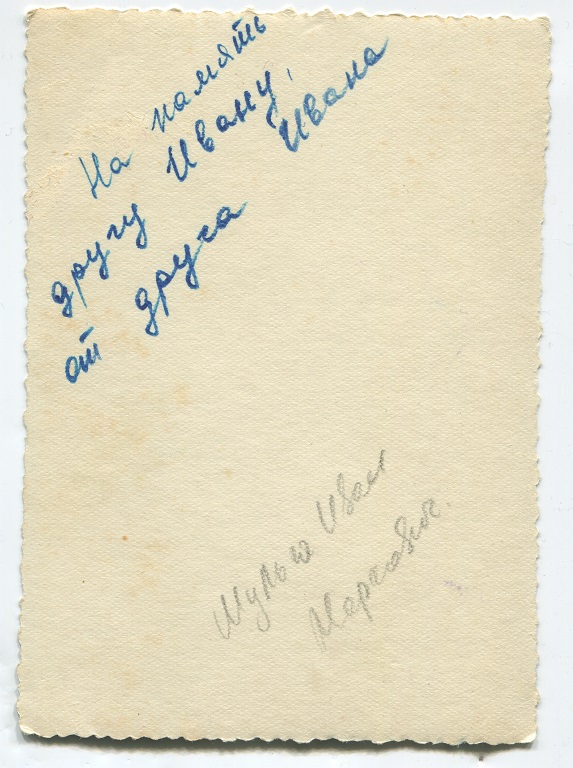 На память
другу Ивану,
от друга Ивана
Шульга Иван
Маркович.